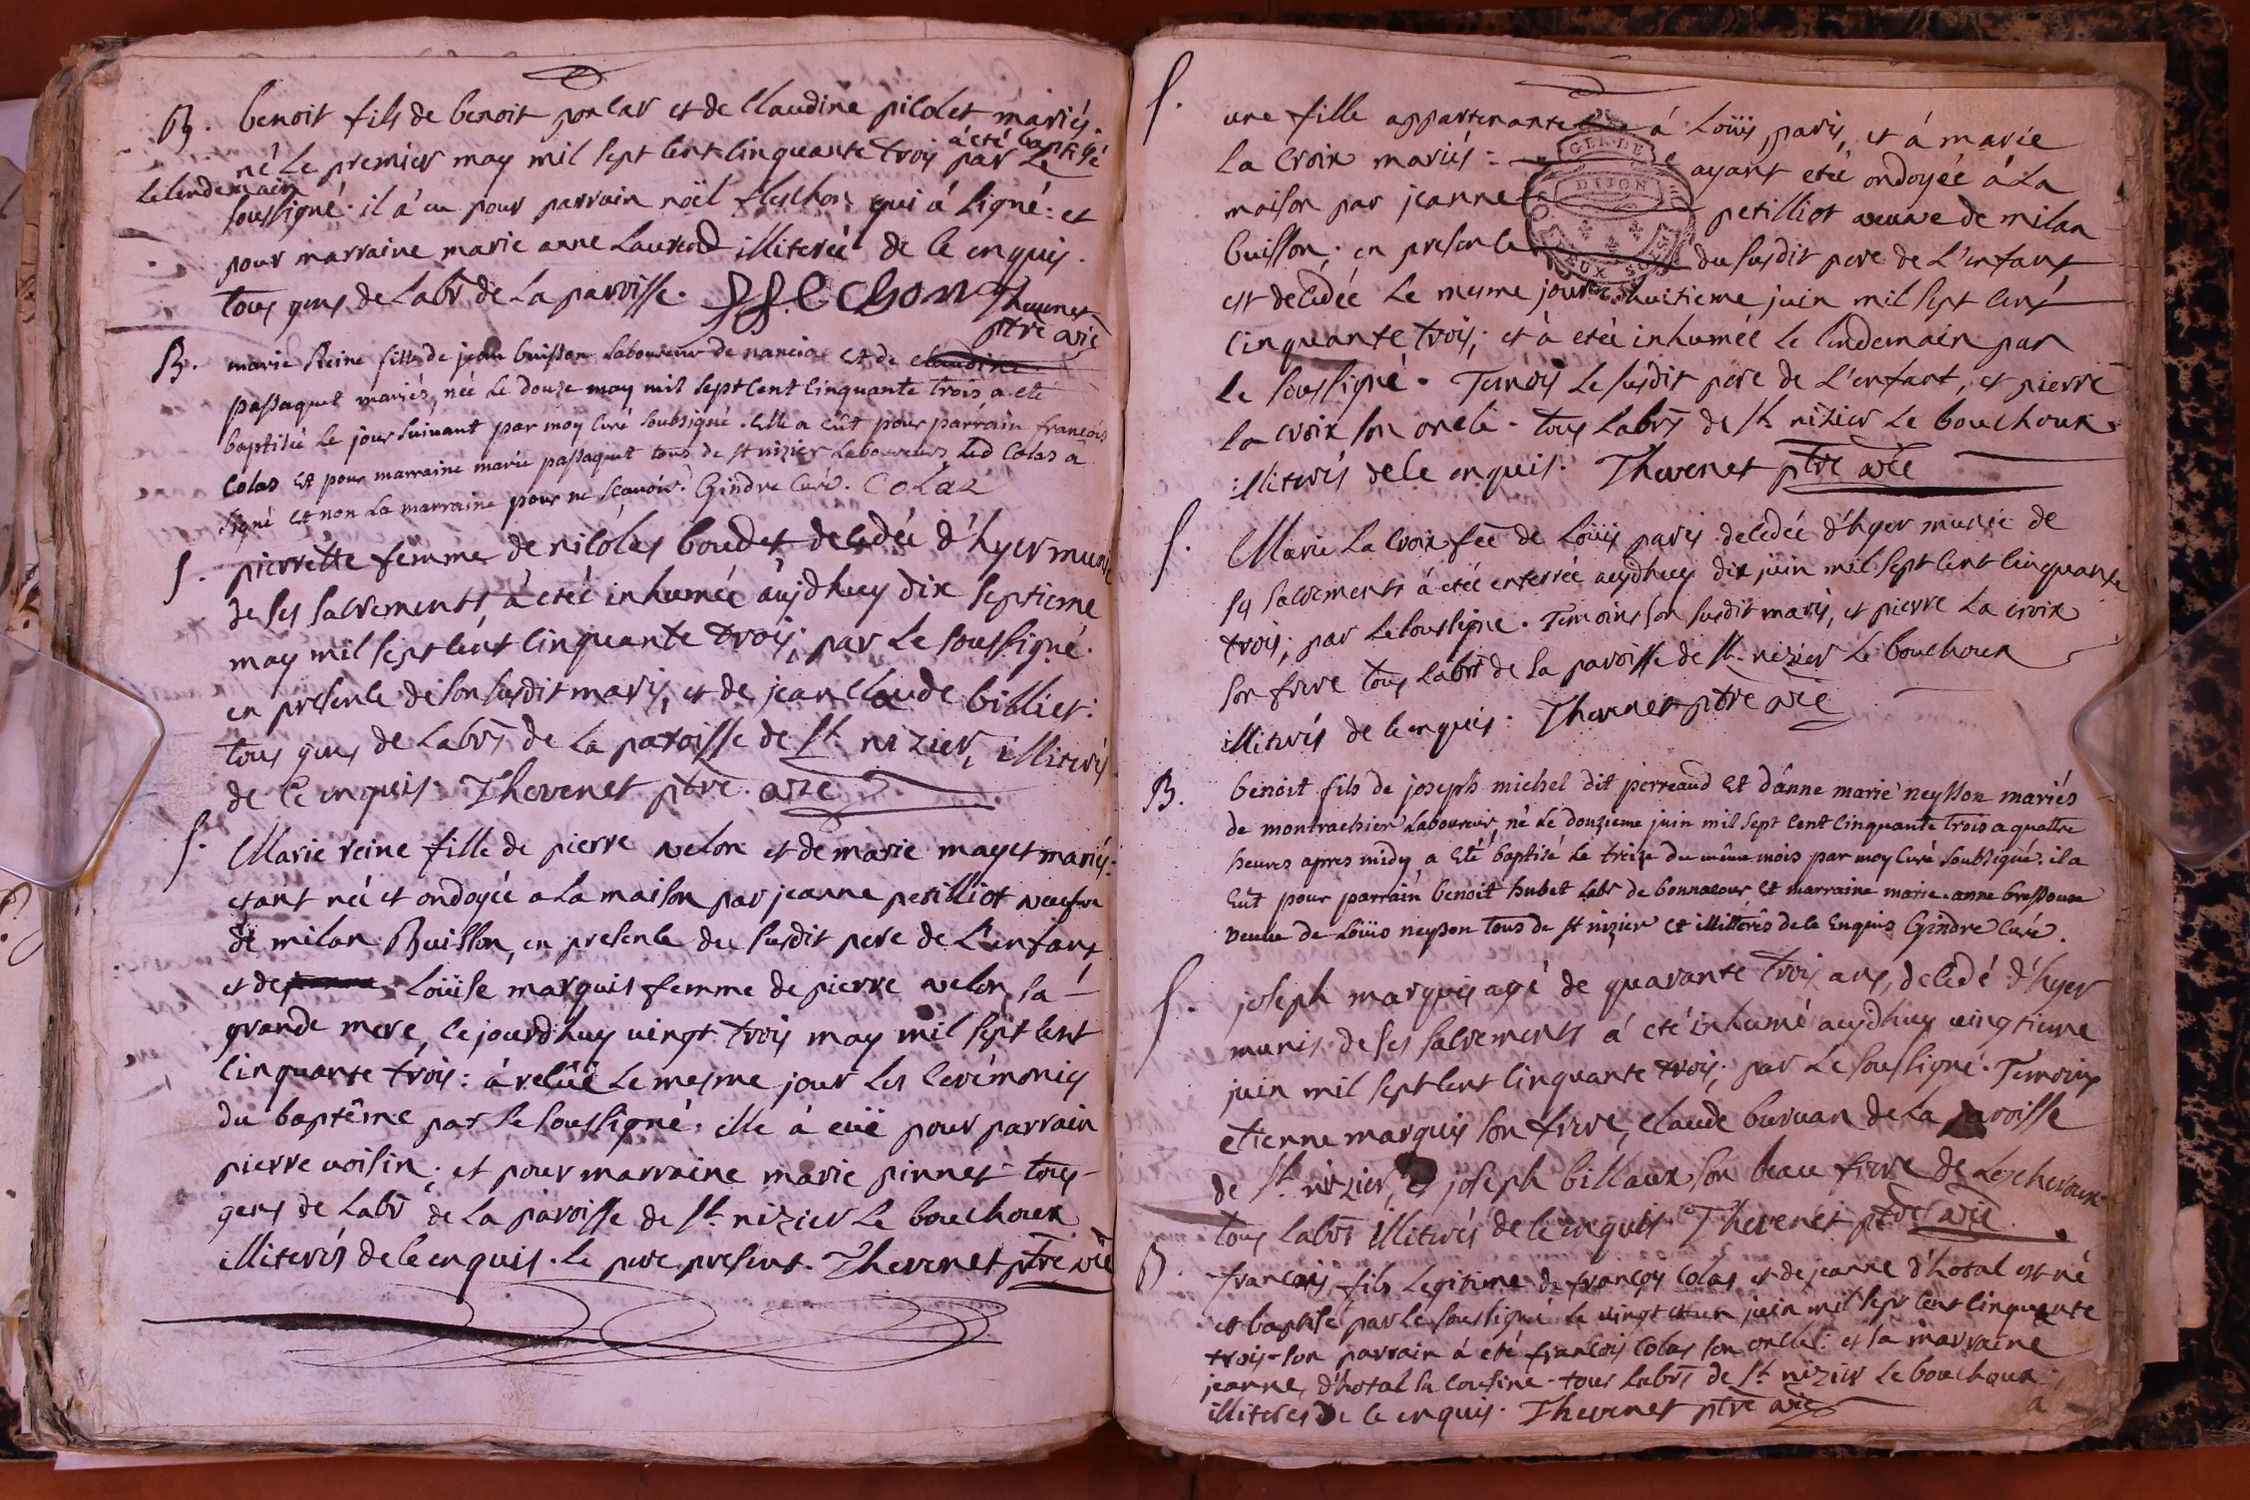 B. benoit fils de benoit poncar et de Claudine picolet mariés.
né le premier may mil sept cent cinquante trois à été baptisé par le
le lendemain
soussigné. il à eu pour parrain noël flechon qui à signé: et
pour marraine marie anne Laurend illiterée de ce enquis.
tous gens de Labr de La paroisse. flechon Thevenet
ptre vic
B. marie Reine fille de jean buisson Laboureur de nancia et de claudine
passaquet mariés, née le douze may mil sept cent cinquante trois a été
baptisée le jour suivant par moy curé soubsigné. elle a eût pour parrain françois
Colas et pour marraine marie passaquet tous de st nizier Laboureurs led Colas a
signé et non la marraine pour ne sçavoir. Gindre curé. Colas
S. pierrette femme de nicolas boudet decedée d'hyer munie
de ses sacrements à etée inhumée aujdhuy dix septieme
may mil sept cent cinquante trois; par le soussigné.
en presence de son susdit maris, et de jean claude billiet:
tous gens de Labr de La paroisse de st. nizier, illiterés
de ce enquis. Thevenet ptre. vic
S. Marie reine fille de pierre velon et de marie mayet mariés:
etant née et ondoyée a La maison par jeanne petilliot veufve
de milan Buisson, en presence du susdit pere de L'enfant
et de jeanne Loüise marquis femme de pierre velon sa
grande mere, ce jourdhuy vingt trois may mil sept cent
cinquante trois: à reçüe Le mesme jour les ceremonies
du baptême par le soussigné. elle à eüe pour parrain
pierre voisin; et pour marraine marie pinnet tous
gens de Labr de La paroisse de st. nizier Le bouchoux
illiterés de ce enquis. Le pere present. Thevenet ptre vic
S. une fille appartenante à Loüis paris, et à marie
La Croix mariés: ayant etée ondoyée à La
maison par jeanne petilliot veuve de milan
buisson; en presence du susdit pere de L'enfant
est decedée Le mesme jour huitieme juin mil sept cent
cinquante trois; et à etée inhumée le lendemain par
le soussigné. Temois Le susdit pere de L'enfant, et pierre
la croix son oncle. tous Labrs de st nizier Le bouchoux
illiterés de ce enquis. Thevenet ptre vic
GEN. DE
DIJON
DEUX SOLS
S. Marie La Croix fee de Loüis paris decedée d'hyer munie de
ses sacrements à etée enterrée aujdhuy dix juin mil sept cent cinquante
trois; par le soussigné. Temoins son susdit maris, et pierre La croix
son frere tous Labrs de La paroisse de st. nizier Le bouchoux
illiterés de ce enquis. Thevenet ptre vic
B. benoit fils de joseph michel dit perreaud et d'anne marie neysson mariés
de montrachier Laboureur, né le douzieme juin mil sept cent cinquante trois a quattre
heures apres midy a eté baptisé le treize du même mois par moy curé soubsigné. il a
eût pour parrain benoit hubet Labr de bonnacour et marraine marie anne bressoux
veuve de Loüis neyson tous de st nizier et illitterés de ce enquis Gindre curé.
S. joseph marquis agé de quarante trois ans, decedé d'hyer
munis de ses sacrements à eté inhumé aujdhuy vingtieme
juin mil sept cent cinquante trois; par le soussigné. Temoins
etienne marquis son frere, claude buruan de La paroisse
de st. nizier, et joseph billaux son beau frere de Lescheroux
tous Labrs illiterés de ce enquis. Thevenet ptre vic
B. françois fils Legitime de françois Colas et de jeanne d'hotal est né
et baptisé par le soussigné le vingt et un juin mil sept cent cinquante
trois. son parrain à eté françois Colas son oncle: et sa marraine
jeanne d'hotal sa cousine. tous Labrs de st. nizier Le bouchoux
illiterés de ce enquis. Thevenet ptre vic